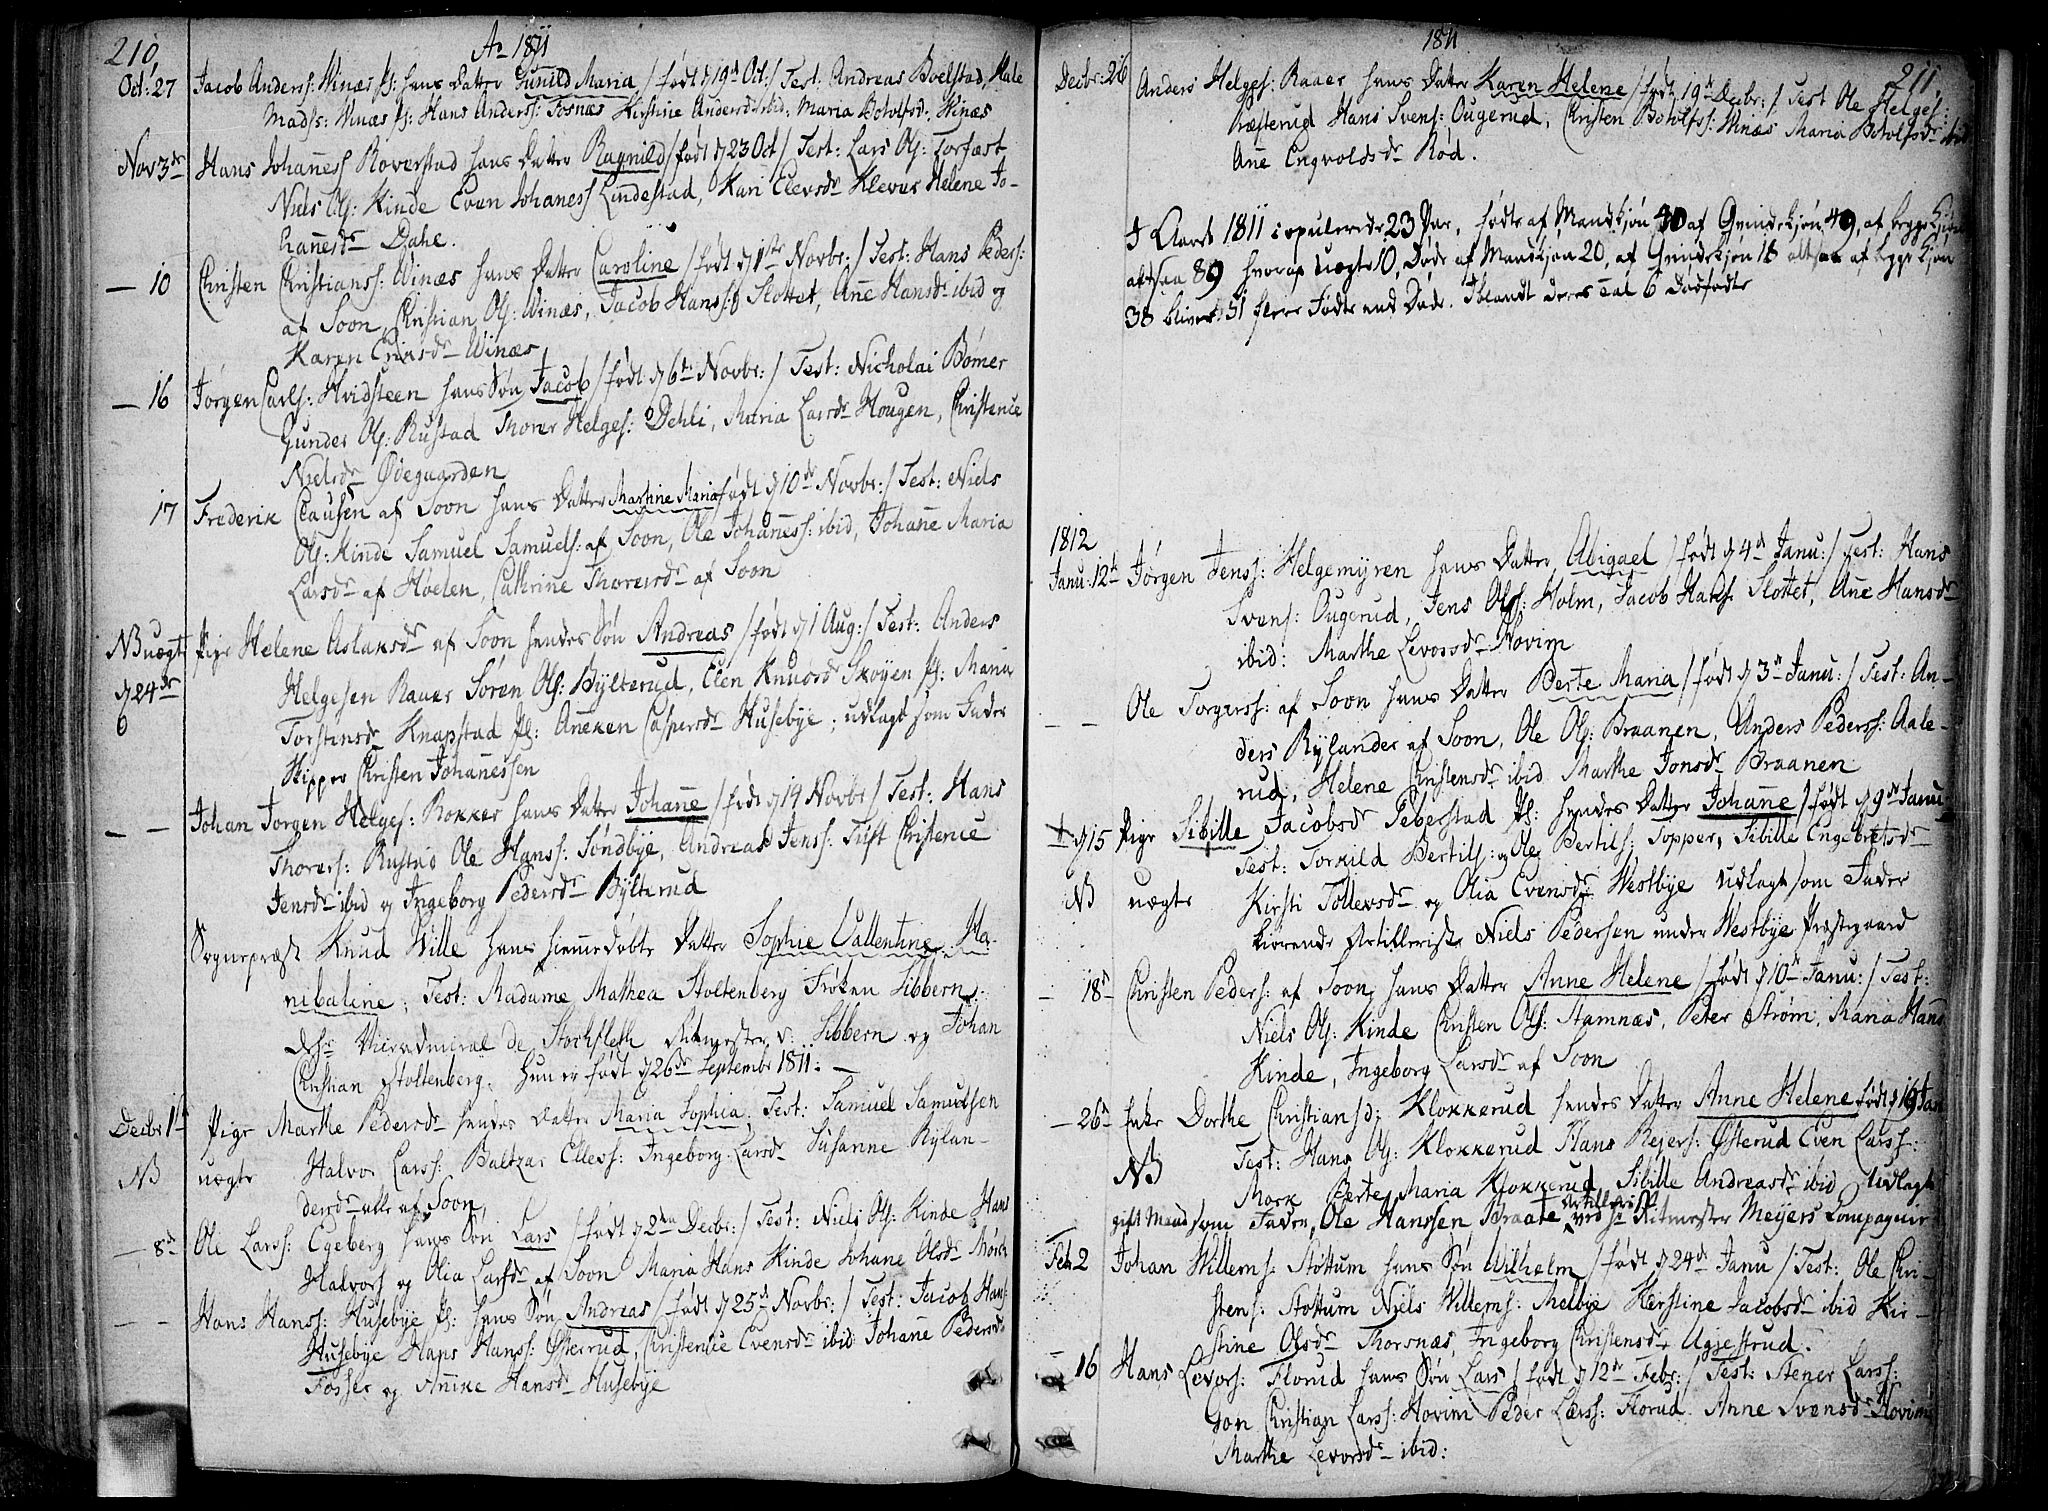 210,
Ao 1811
Oct: 27 Jacob Anders: Winæs Pl: hans Datter Gunild Maria / født d 19d Oct: / Test: Andreas Boelstad, Hale
Mads: Winæs Pl: Hans Anders: Fosnæs Kirstine Andersdr ibid: Maria Botolfsd: Winæs
Nov 3de Hans Johaness Roverstad hans Datter Ragnild / født d 23 Oct / Test: Lars Ols: Torfæst
Niels Ols: Kinde Even Johaness Lindestad, Kari Elevsdr Klever Helene Jo-
hanesdr Dahe.
— 10 Christen Christians: Winæs hans Datter Caroline / født d 1ste Novbr: / Test: Hans Peders:
af Soon, Christian Ols: Winæs, Jacob Hans: Slottet, Ane Hansdr ibid og
Karen Eriksdr Winæs
— 16 Jørgen Carls: Hvidsteen hans Søn Jacob / født d 6te Novbr: / Test: Nicholai Bømer
Gunder Ols: Rustad Thorer Helges: Dehli, Maria Larsdr Hougen, Christence
Nielsdr Ødegaarden
17 Frederik Clausen af Soon hans Datter Martine Maria født d 10de Novbr: / Test: Niels
Ols: Kinde Samuel Samuels: af Soon, Ole Johaness: ibid, Johane Maria
Larsdr af Høelen, Cathrine Thoresdr af Soon
NB uægte Pige Helene Aslaksdr af Soon hendes Søn Andreas / født d 1 Aug: / Test: Anders
d 24de Helgesen Rauer Søren Ols: Bylterud, Elen Knudsdr Skoyen Pl: Maria
Torstensdr Knapstad Pl: Aneken Caspersdr Husebye; udlagt som Fader
Skipper Christen Johanessen
— — Johan Jørgen Helges: Rokker hans Datter Johane / født d 14 Novbr / Test: Hans
Thorers: Rustad Ole Hans: Søndbye, Andreas Jens: Tuft Christence
Jensdr ibid og Ingeborg Pedersdr Bylterud
Sognepræst Knud Wille hans hiemmedøbte Datter Sophie Vallentine Ha-
nibaline; Test: Madame Mathea Stoltenberg Frøken Sibbern
Hr Viceadmiral de Stochfleth Ritmester v: Sibbern og Johan
Christian Stoltenberg. Hun er født d 26de Septembr 1811: —
Decbr 1te Pige Marthe Pedersdr hendes Datter Maria Sophia; Test: Samuel Samuelsen
NB uægte Halvor Lars: Baltzar Ellefs: Ingeborg Larsd Susanne Rylan-
dersdr alle af Soon,
— 8d Ole Lars: Egeberg hans Søn Lars / født d 2den Decbr: / Test: Niels Ols: Kinde Hans
Halvors og Olia Larsdr af Soon Maria Hans Kinde Johane Olsdr Mørk
— — Hans Hans: Husebye Pl: hans Søn Andreas / født d 25d Novbr: / Test: Jacob Hans:
Husebye Hans Hans: Østerud, Christence Evensdr ibid: Johane Pedersdr
Fosser og Anike Hansdr Husebye
1811
211.
Decbr: 26 Anders Helges: Raaer hans Datter Karen Helene / født 19d Decbr: / Test Ole Helges:
Præsterud Hans Svens: Ougerud, Christen Botolfs: Winæs Maria Botolfsdr ibid
Ane Engvoldsdr Rød.
I Aaret 1811 copulerede 23 Par, fødte af Mandkjøn 40 af Qvindekjøn 49, af begge Kjøn
altsaa 89 hvoraf uægte 10, Døde af Mandkjøn 20, af Qvindekjøn 18 altsaa af begge Kjøn
38 bliver 51 flere Fødte end Døde. Iblandt deres Tal 6 Dødfødte
1812
Janu: 12te Jørgen Jens: Helgemyren hans Datter Abigael / født d 4d Janu: / Test: Hans
Svens: Ougerud, Jens Ols: Holm, Jacob Hans: Slottet, Ane Hansdr
ibid: Marthe Levorsdr Hovim
— — Ole Torgers: af Soon hans Datter Berte Maria / født d 3d Janu: / Test: An-
ders Rylander af Soon, Ole Ols: Braanen, Anders Peders: Aale-
rud, Helene Christensdr ibid Marthe Jonsdr Braanen
d 15 Pige Sibille Jacobsdr Teberstad Pl: hendes Datter Johane / født d 9de Janu:
Test: Torkild Bertils: og Ole Bertils: Topper, Sibille Engebretsdr
NB uægte Kirsti Tollevsdr og Olia Evensdr Westbye udlagt som Fader
kiørende Artillerist Niels Pedersen under Westbye Præstegaard
— 18d Christen Peders: af Soon, hans Datter Anne Helene / født d 10d Janu: / Test:
Niels Ols: Kinde Christen Ols: Stamnæs, Peter Strøm, Maria Hans
Kinde, Ingeborg Larsdr af Soon
— 26d Enke Dorthe Christiansd: Klokkerud hendes Datter Anne Helene født d 19 Jan
NB Test: Hans Ols: Klokkerud Hans Rejers: Østerud Even Lars:
Mork Berte Maria Klokkerud, Sibille Andreasdr ibid Udlagt
gift Mand som Fader, Ole Hanssen Braate Artillerist ved Hr Ritmester Meijers Compagnie
Feb 2 Johan Willems: Støttum hans Søn Wilhelm / født d 24de Janu / Test: Ole Chri-
stens: Støttum Niels Willems: Melbye Kerstine Jacobsdr ibid Kir-
stine Olsdr Thorsnæs, Ingeborg Christensdr Uggestrud.
— 16 Hans Levors: Florud hans Søn Lars / født d 12te Febr: / Test: Stener Lars:
Gon Christian Lars: Hovim Peder Lars: Florud Anne Svensdr Hovim
Marthe Levorsdr ibid: